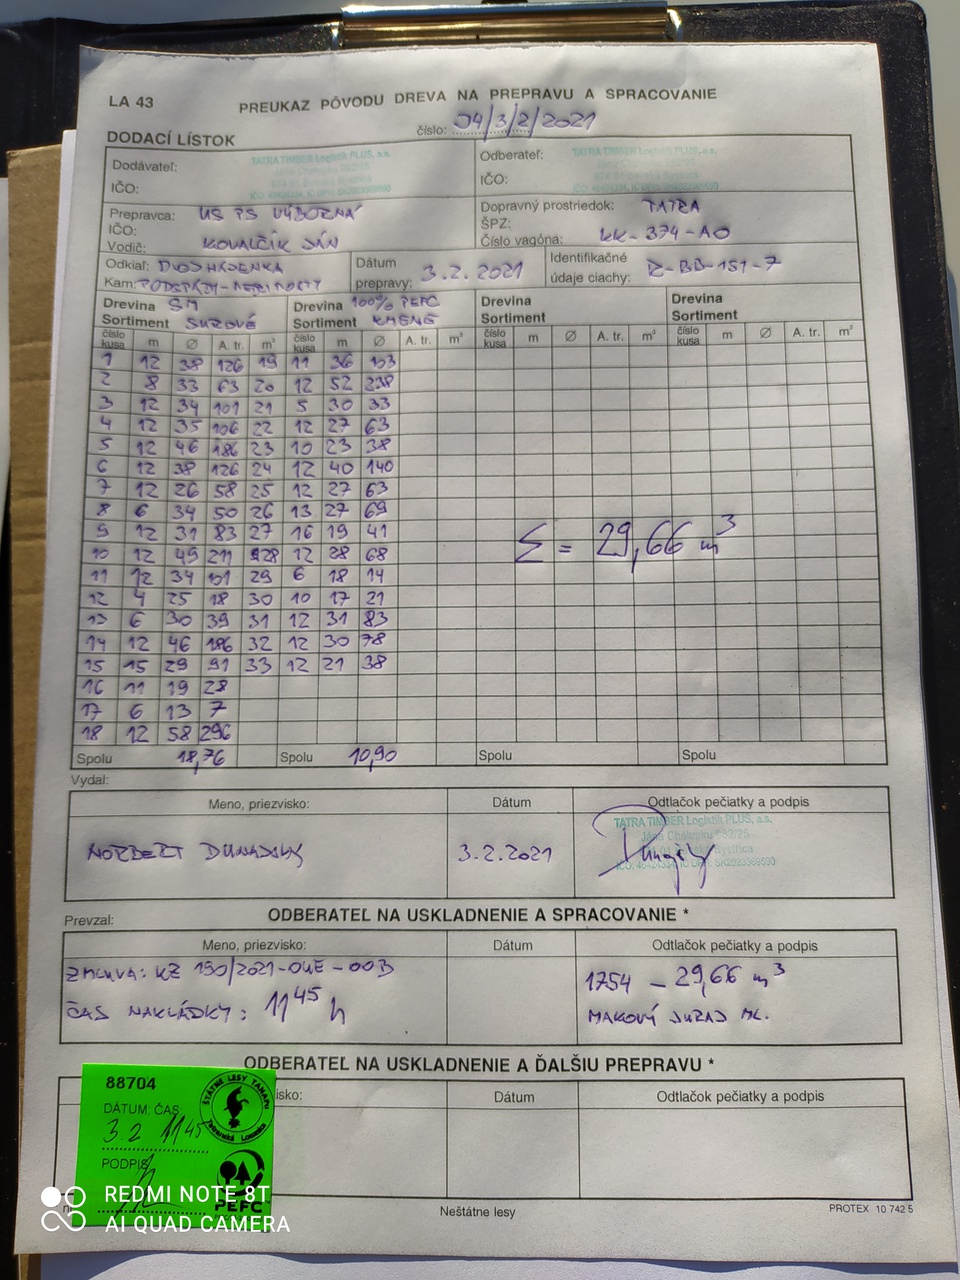 LA 43
PREUKAZ PÔVODU DREVA NA PREPRAVU A SPRACOVANIE
číslo: 04/3/2/2021
DODACÍ LÍSTOK
Dodávateľ: TATRA TIMBER Logistik PLUS, a.s.
IČO:
Odberateľ: TATRA TIMBER Logistik PLUS, a.s.
IČO:
Prepravca: US PS VÝBORNÁ
IČO:
Vodič: KOVALČÍK JÁN
Dopravný prostriedok: TATRA
ŠPZ:
Číslo vagóna: KK-374-AO
Odkiaľ:
Kam:
Dátum
prepravy: 3.2.2021
Identifikačné
údaje ciachy: Z-BB-151-7
Drevina SM Drevina 100% PEFC Drevina Drevina
Sortiment SUROVÉ Sortiment KMENE Sortiment Sortiment
číslo kusa m Ø A. tr. m³ číslo kusa m Ø A. tr. m³ číslo kusa m Ø A. tr. m³ číslo kusa m Ø A. tr. m³
1 12 38 126 19 11 36 103
2 8 33 63 20 12 52 238
3 12 34 101 21 5 30 33
4 12 35 106 22 12 27 63
5 12 46 186 23 10 23 38
6 12 38 126 24 12 40 140
7 12 26 58 25 12 27 63
8 6 34 50 26 13 27 69
9 12 31 83 27 16 19 41
10 12 49 211 28 12 28 68
11 12 34 101 29 6 18 14
12 4 25 18 30 10 17 21
13 6 30 39 31 12 31 83
14 12 46 186 32 12 30 78
15 15 29 91 33 12 21 38
16 11 19 28
17 6 13 7
18 12 58 296
Σ = 29,66 m³
Spolu 18,76 Spolu 10,90 Spolu Spolu
Vydal:
Meno, priezvisko: Dátum Odtlačok pečiatky a podpis
TATRA TIMBER Logistik PLUS, a.s.
NORBERT 3.2.2021
Prevzal:
ODBERATEĽ NA USKLADNENIE A SPRACOVANIE *
Meno, priezvisko: Dátum Odtlačok pečiatky a podpis
ZMLUVA: KZ 190/2021-OUE-00B
1754 - 29,66 m³
ČAS NAKLÁDKY: 11⁴⁵ h
MAKOVÝ JURAJ ML.
ODBERATEĽ NA USKLADNENIE A ĎALŠIU PREPRAVU *
isko: Dátum Odtlačok pečiatky a podpis
88704
ŠTÁTNE LESY TANAPU
Tatranská Lomnica
DÁTUM, ČAS
3.2 11⁴⁵
PODPIS
PEFC
Neštátne lesy
PROTEX 10 742 5
REDMI NOTE 8T
AI QUAD CAMERA